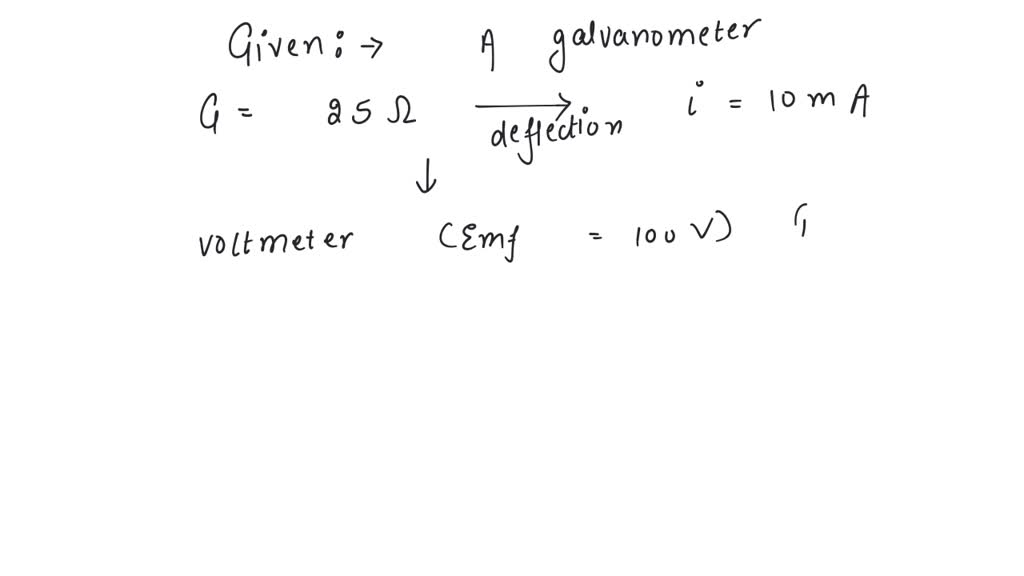 Given: → A galvanometer
G = 25 Ω → deflection i = 10 m A
↓
voltmeter (Emf = 100 V)